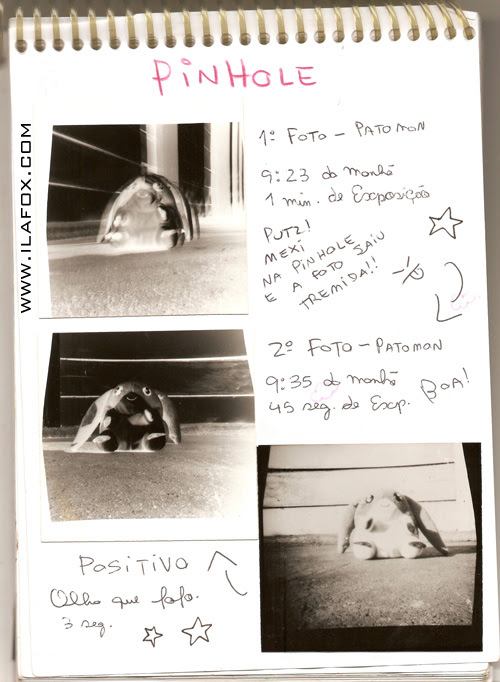 PINHOLE
1º FOTO - PATOMON
9:23 da manhã
1 min. de Exposição
PUTZ!
MEXI
NA PINHOLE
E A FOTO SAIU
TREMIDA!!
2º FOTO - PATOMON
9:35 da manhã
45 seg. de Exp.
BOA!
POSITIVO
Olha que fofo.
3 seg.
WWW.ILAFOX.COM